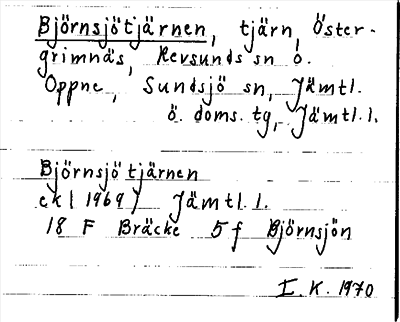 Björnsjötjärnen, tjärn, Öster-
grimnäs, Revsunds sn o.
Oppne, Sundsjö sn, Jämtl.
ö. doms. tg, Jämtl. l.
Björnsjötjärnen
ek (1969) Jämtl. l.
18 F Bräcke 5 f Björnsjön
I. K. 1970